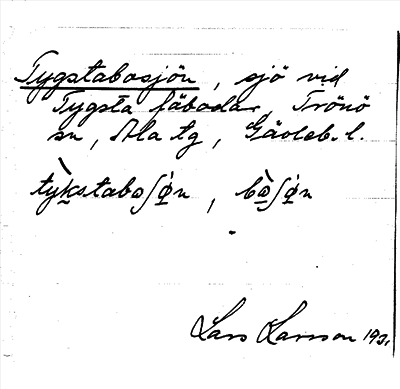 Tygstabosjön, sjö vid
Tygsta fäbodar, Trönö
sn, Ala tg, Gävleb. l.
tỳkstaboʃø̀n, bòʃø̀n
Lars Larsson 193